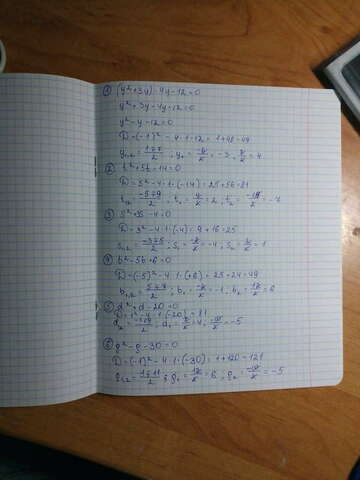 ① (y²+3y)-4y-12=0
y²+3y-4y-12=0
y²-y-12=0
D=(-1)²-4·1·12=1+48=49
y₁,₂=(1±7)/2; y₁=-6/2=-3; 8/2=4
② t²+5t-14=0
D=5²-4·1·(-14)=25+56=81
t₁,₂=(-5±9)/2; t₁=4/2=2; t₂=-14/2=-7
③ S²+3S-4=0
D=3²-4·1·(-4)=9+16=25
S₁,₂=(-3±5)/2; S₁=-8/2=-4; S₂=2/2=1
④ b²-5b+6=0
D=(-5)²-4·1·(+6)=25+24=49
b₁,₂=(5±7)/2; b₁=-2/2=-1; b₂=12/2=6
⑤ d²+d-20=0
D=1²-4·1·(-20)=81
d₁,₂=(-1±9)/2; d₁=8/2=4; -10/2=-5
⑥ g²-g-30=0
D=(-1)²-4·1·(-30)=1+120=121
g₁,₂=(1±11)/2; g₁=12/2=6; g₂=-10/2=-5